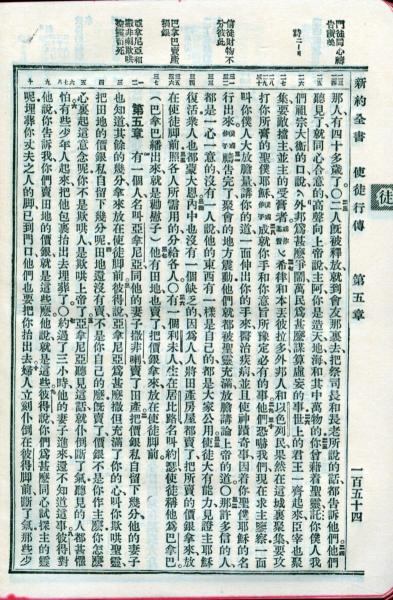 徒
新約全書 使徒行傳 第五章 一百五十四
門徒同心禱告讚美
信徒財物不分彼此
巴拿巴賣產
亞拿尼亞和
那人有四十多歲了○二人既被釋放就到會友那裏去把祭司長和長老所說的話都告訴他們他們
聽見了就同心合意的高聲向上帝說主阿你是造天地海和其中萬物的你曾藉着聖靈託你僕人我
們祖宗大衞的口說外邦爲甚麼爭鬧萬民爲甚麼謀算虛妄的事世上的君王一齊起來臣宰也聚
集要敵擋主並主的受膏者（或作基督）希律和本丟彼拉多外邦人和以色列民果然在這城裏聚集要攻
打你所膏的聖僕耶穌（僕或作子）成就你手和你意旨所豫定必有的事他們恐嚇我們現在求主鑒察一面
叫你僕人大放膽量講你的道一面伸出你的手來醫治疾病並且使神蹟奇事因着你聖僕耶穌的名
行出來（僕或作子）禱告完了聚會的地方震動他們就都被聖靈充滿放膽講論上帝的道○那許多信的人
都是一心一意的沒有一人說他的東西有一樣是自己的都是大家公用使徒大有能力見證主耶穌
復活衆人也都蒙大恩內中也沒有一個缺乏的因爲人人將田產房屋都賣了把所賣的價銀拿來放
在使徒脚前照各人所需用的分給各人○有一個利未人生在居比路名叫約瑟使徒稱他爲巴拿巴
（巴拿巴繙出來就是勸慰子）他有田地也賣了把價銀拿來放在使徒脚前
第五章 有一個人名叫亞拿尼亞同他的妻子撒非喇賣了田產把價銀私自留下幾分他的妻子
也知道其餘的幾分拿來放在使徒脚前彼得說亞拿尼亞爲甚麼撒但充滿了你的心叫你欺哄聖靈
把田地的價銀私自留下幾分呢田地還沒有賣不是你自己的麼既賣了價銀不是你作主麼你怎麼
心裏起這意念呢你不是欺哄人是欺哄上帝了亞拿尼亞聽見這話就仆倒斷了氣聽見的人都甚懼
怕有些少年人起來把他包裹抬出去埋葬了○約過了三小時他的妻子進來還不知道這事彼得對
他說你告訴我你們賣田地的價銀就是這些麼他說就是這些彼得說你們爲甚麼同心試探主的靈
呢埋葬你丈夫之人的脚已到門口他們也要把你抬出去婦人立刻仆倒在彼得脚前斷了氣那些少